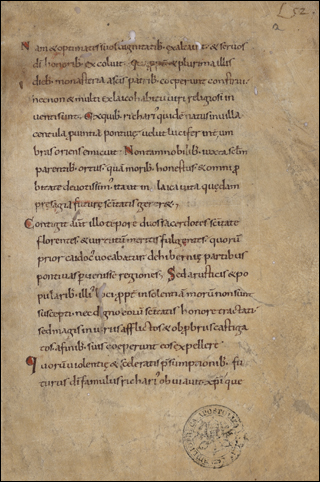 [52.
Nam & optimates suos dignitatib; exaltauit & seruos
di honorib; excoluit. plurima illis
dieb; monasteria a scis patrib; coeperunt construi
necnon & multi ex laico habitu uiri religiosi in
uenti sunt. Ex quib; richarius quidem natus in uilla
centula puintia pontiua uelut lucifer inter um
bras oriens emicuit. Non tam nobilib; iuxta sclm
parentib; ortus. quam morib; honestus & omni p
bitate deuotissimus. ita ut in laica uita quedam
presagia future scitatis gerer&;
Contigit aut illo tempore duos sacerdotes scitate
florentes & uirtutum meritis fulgentes. quorum
prior caidocus uocabatur de hiberniae partibus
pontiuas puenisse regiones. Sed a rusticis & po
pularib; illius loci. ppt insolentiam morum non sunt
suscepti. nec digno eorum scitatis honore tractati
sed magis iniuriis afflictos & obpbriis castiga
tos. a finib; suis coeperunt eos expellere.
Quorum uiolentiae & sceleratis psumptionib; fu
turus di famulus richarius obuiauit. xpi que